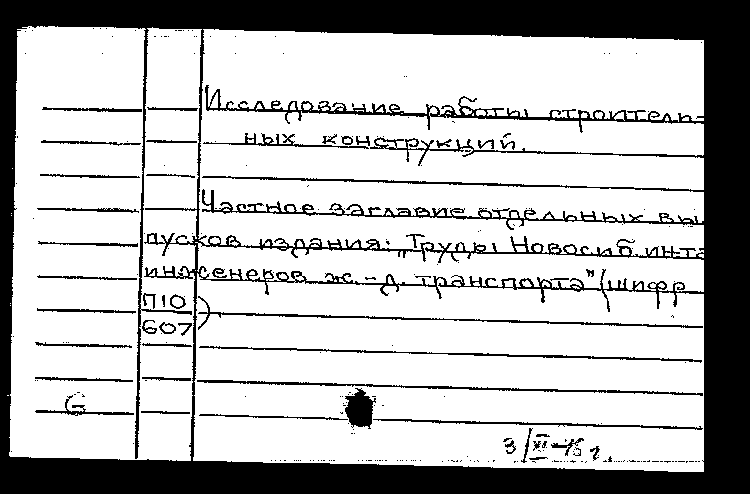 Исследование работы строитель-
ных конструкций.
Частное заглавие отдельных вы
пусков издания: „Труды Новосиб. ин-та
инженеров ж.-д. транспорта" (шифр
П10
607)
G
3/XII